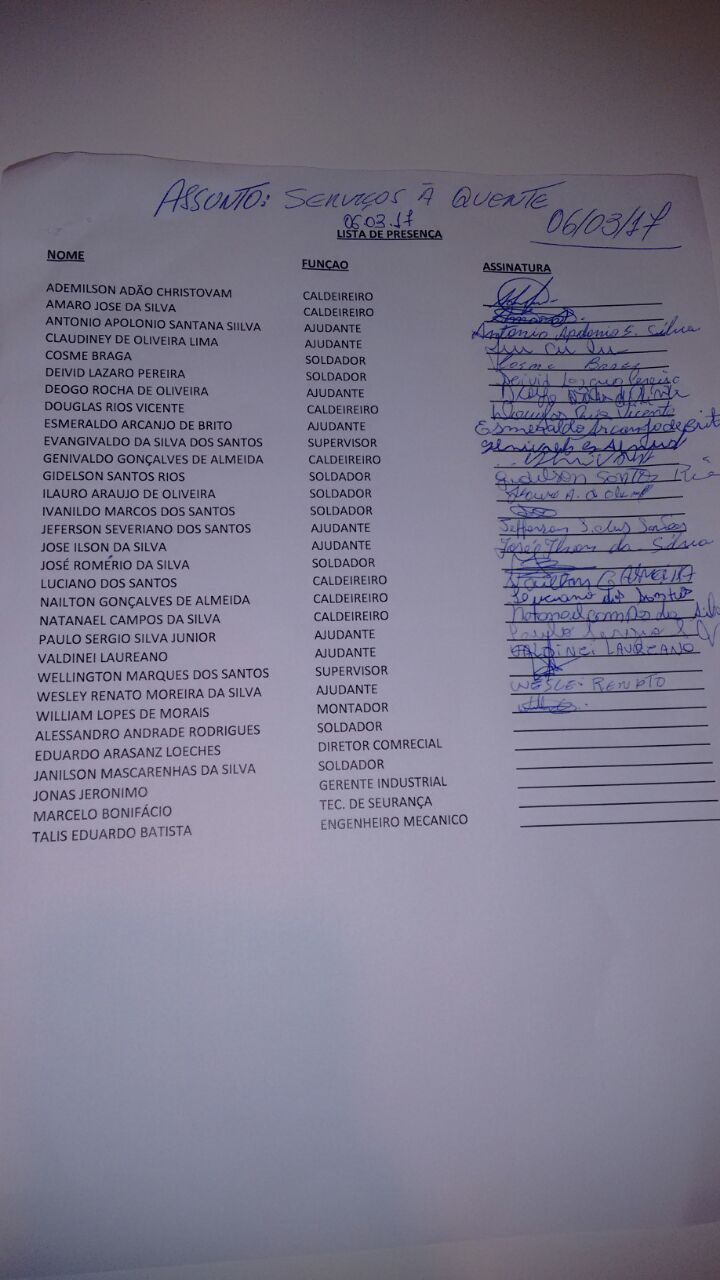 ASSUNTO: SERVIÇOS À QUENTE
06.03.17 06/03/17
LISTA DE PRESENÇA
NOME FUNÇAO ASSINATURA
ADEMILSON ADÃO CHRISTOVAM CALDEIREIRO
AMARO JOSE DA SILVA CALDEIREIRO Amaro J.
ANTONIO APOLONIO SANTANA SIILVA AJUDANTE Antonio Apolonio S. Silva
CLAUDINEY DE OLIVEIRA LIMA AJUDANTE
COSME BRAGA SOLDADOR Cosme Braga
DEIVID LAZARO PEREIRA SOLDADOR Deivid Lazaro Pereira
DEOGO ROCHA DE OLIVEIRA AJUDANTE
DOUGLAS RIOS VICENTE CALDEIREIRO Douglas Rios Vicente
ESMERALDO ARCANJO DE BRITO AJUDANTE Esmeraldo Arcanjo de Brito
EVANGIVALDO DA SILVA DOS SANTOS SUPERVISOR
GENIVALDO GONÇALVES DE ALMEIDA CALDEIREIRO
GIDELSON SANTOS RIOS SOLDADOR Gidelson Santos Rio
ILAURO ARAUJO DE OLIVEIRA SOLDADOR
IVANILDO MARCOS DOS SANTOS SOLDADOR
JEFERSON SEVERIANO DOS SANTOS AJUDANTE Jefferson S. dos Santos
JOSE ILSON DA SILVA AJUDANTE José Ilson da Silva
JOSÉ ROMÉRIO DA SILVA SOLDADOR
LUCIANO DOS SANTOS CALDEIREIRO Nailton G ALMEIDA
NAILTON GONÇALVES DE ALMEIDA CALDEIREIRO Luciano dos Santos
NATANAEL CAMPOS DA SILVA CALDEIREIRO Natanael campos da Silva
PAULO SERGIO SILVA JUNIOR AJUDANTE Paulo Sergio S
VALDINEI LAUREANO AJUDANTE VALDINEI LAUREANO
WELLINGTON MARQUES DOS SANTOS SUPERVISOR
WESLEY RENATO MOREIRA DA SILVA AJUDANTE WESLEI RENATO
WILLIAM LOPES DE MORAIS MONTADOR
ALESSANDRO ANDRADE RODRIGUES SOLDADOR
EDUARDO ARASANZ LOECHES DIRETOR COMRECIAL
JANILSON MASCARENHAS DA SILVA SOLDADOR
JONAS JERONIMO GERENTE INDUSTRIAL
MARCELO BONIFÁCIO TEC. DE SEURANÇA
TALIS EDUARDO BATISTA ENGENHEIRO MECANICO